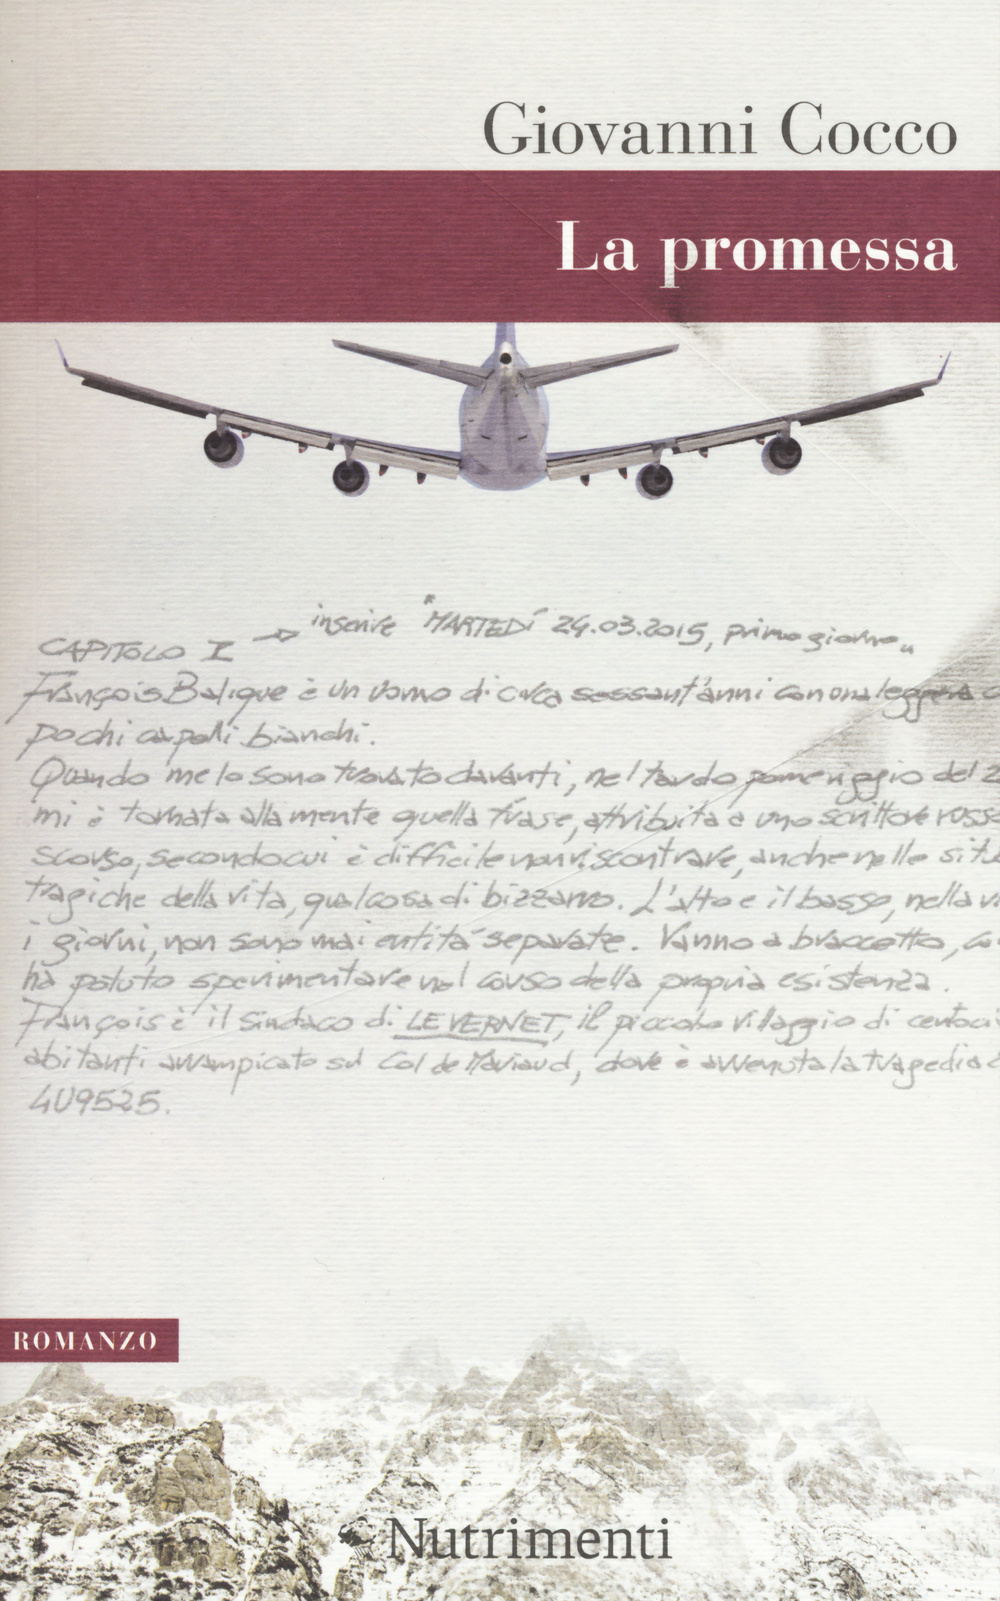 Giovanni Cocco
La promessa
inserire "MARTEDÍ 24.03.2015, primo giorno"
CAPITOLO I →
François Balique è un uomo di circa sessant'anni con una leggera
pochi capelli bianchi.
Quando me lo sono trovato davanti, nel tardo pomeriggio del 2
mi è tornata alla mente quella frase, attribuita a uno scrittore russo
scorso, secondo cui è difficile non riscontrare, anche nelle situ
tragiche della vita, qualcosa di bizzarro. L'alto e il basso, nella vi
i giorni, non sono mai entità separate. Vanno a braccetto, co
ha potuto sperimentare nel corso della propria esistenza.
François è il sindaco di LE VERNET, il piccolo villaggio di centoci
abitanti arrampicato sul Col de Mariaud, dove è avvenuta la tragedia d
4U9525.
ROMANZO
Nutrimenti